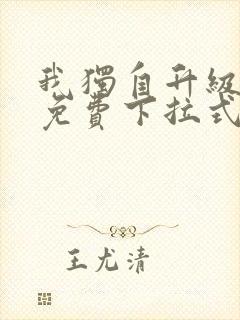 我獨自升級
免費下拉式
王尤清